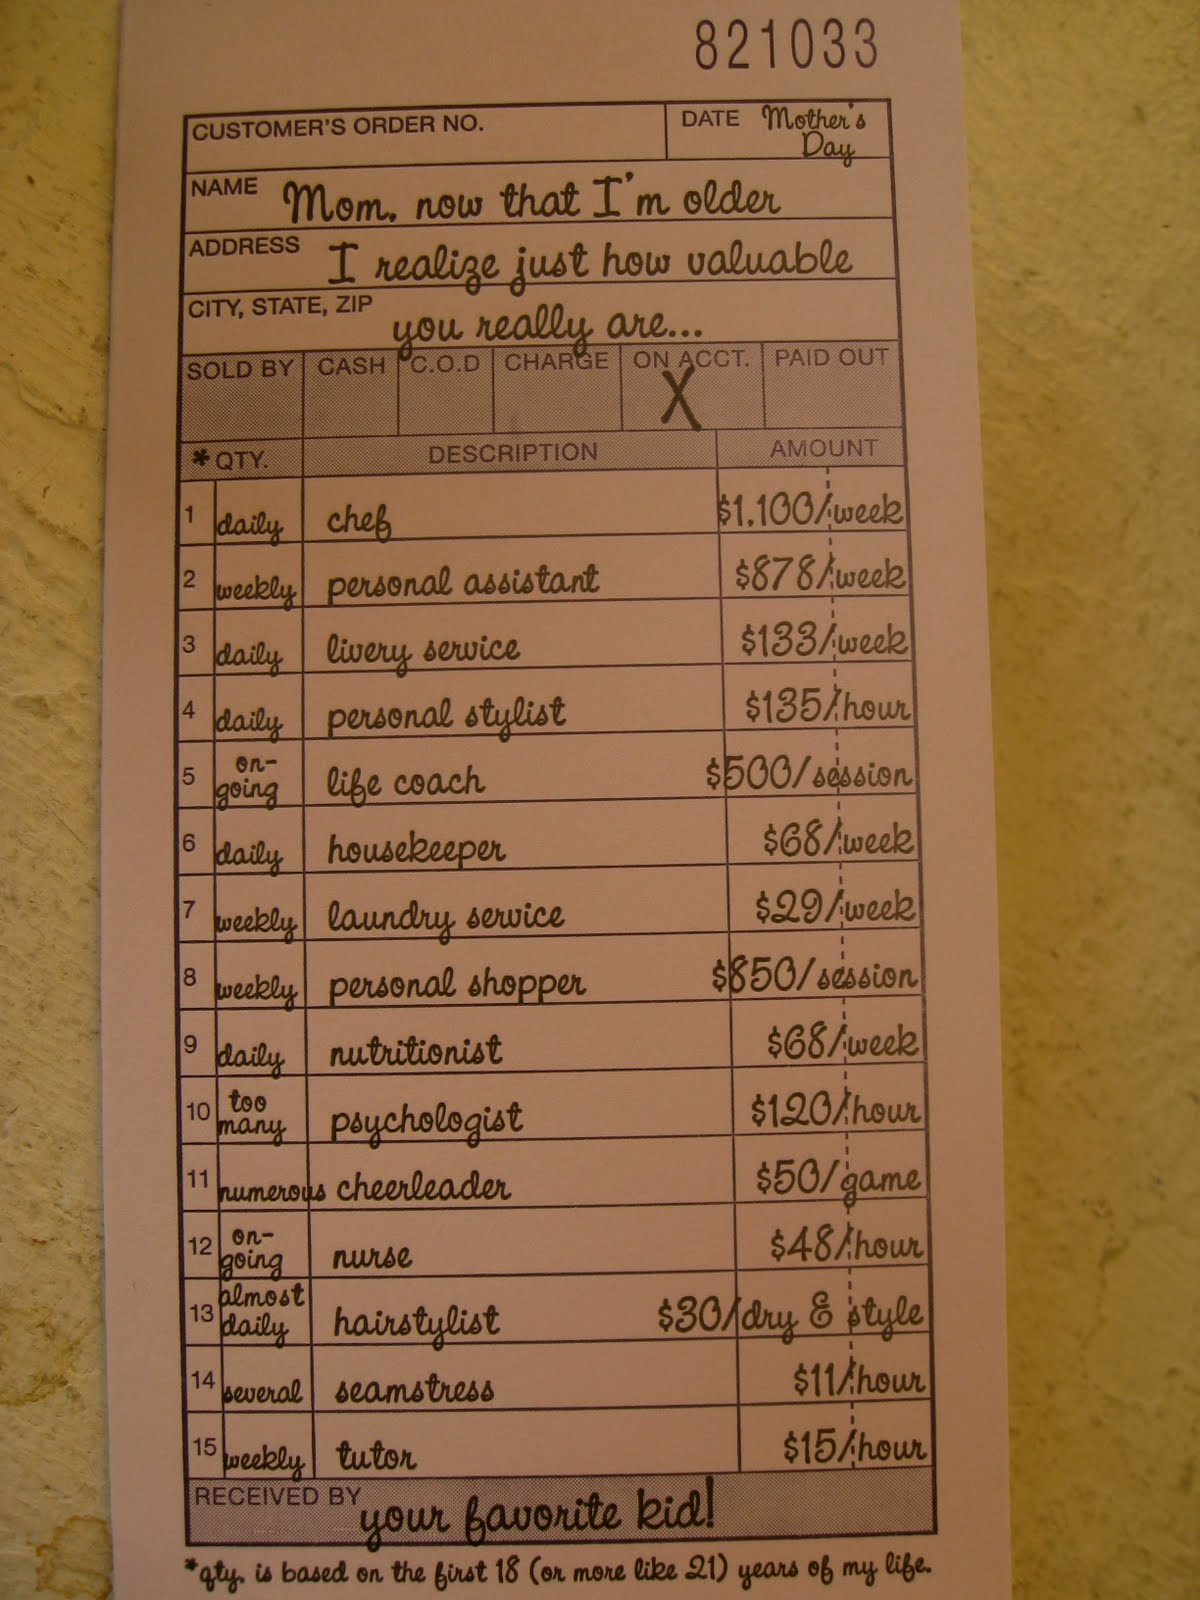 821033
CUSTOMER'S ORDER NO. DATE Mother's
Day
NAME Mom, now that I'm older
ADDRESS I realize just how valuable
CITY, STATE, ZIP you really are...
SOLD BY CASH C.O.D CHARGE ON ACCT. PAID OUT
X
* QTY. DESCRIPTION AMOUNT
1 daily chef $1,100/week
2 weekly personal assistant $878/week
3 daily livery service $133/week
4 daily personal stylist $135/hour
5 on-
going life coach $500/session
6 daily housekeeper $68/week
7 weekly laundry service $29/week
8 weekly personal shopper $850/session
9 daily nutritionist $68/week
10 too
many psychologist $120/hour
11 numerous cheerleader $50/game
12 on-
going nurse $48/hour
13 almost
daily hairstylist $30/dry & style
14 several seamstress $11/hour
15 weekly tutor $15/hour
RECEIVED BY your favorite kid!
*qty. is based on the first 18 (or more like 21) years of my life.